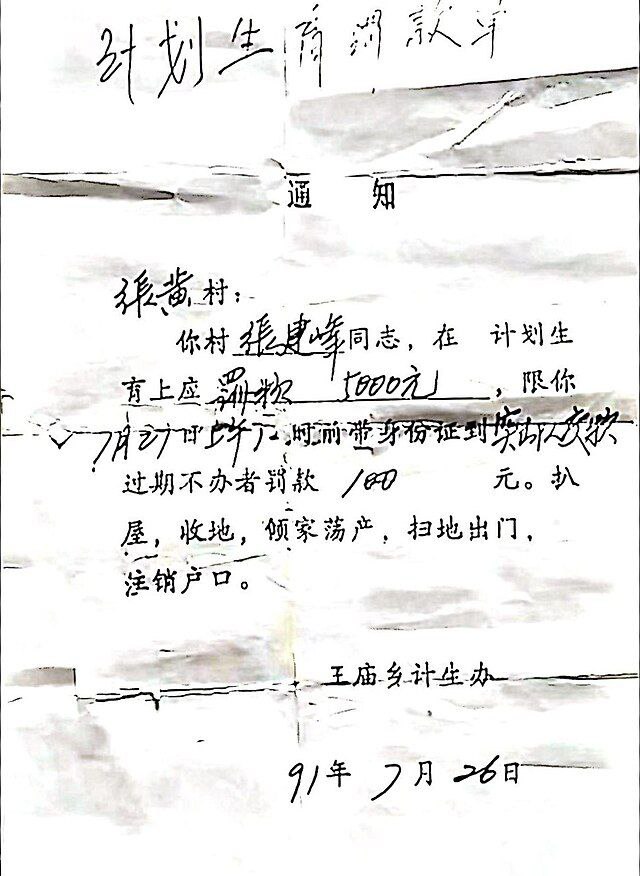 计划生育罚款单
通 知
张黄村：
你村张建峰同志，在 计划生
育上应罚款 5000元，限你
7月27日上午12时前带身份证到 交款
过期不办者罚款 100 元。扒
屋，收地，倾家荡产，扫地出门，
注销户口。
王庙乡计生办
91年 7月 26日